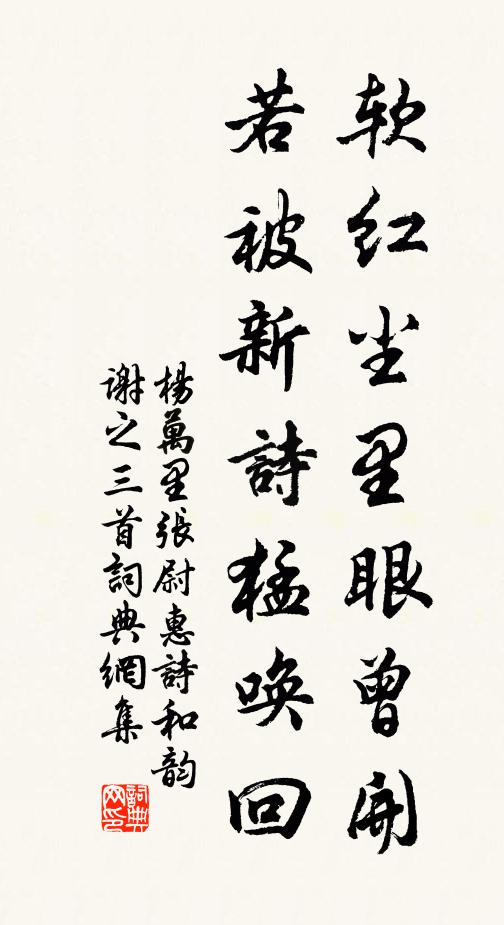 软红尘里眼曾開
若被新詩猛唤回
楊萬里張尉惠詩和韵
谢之三首詞典網集
詞典网印